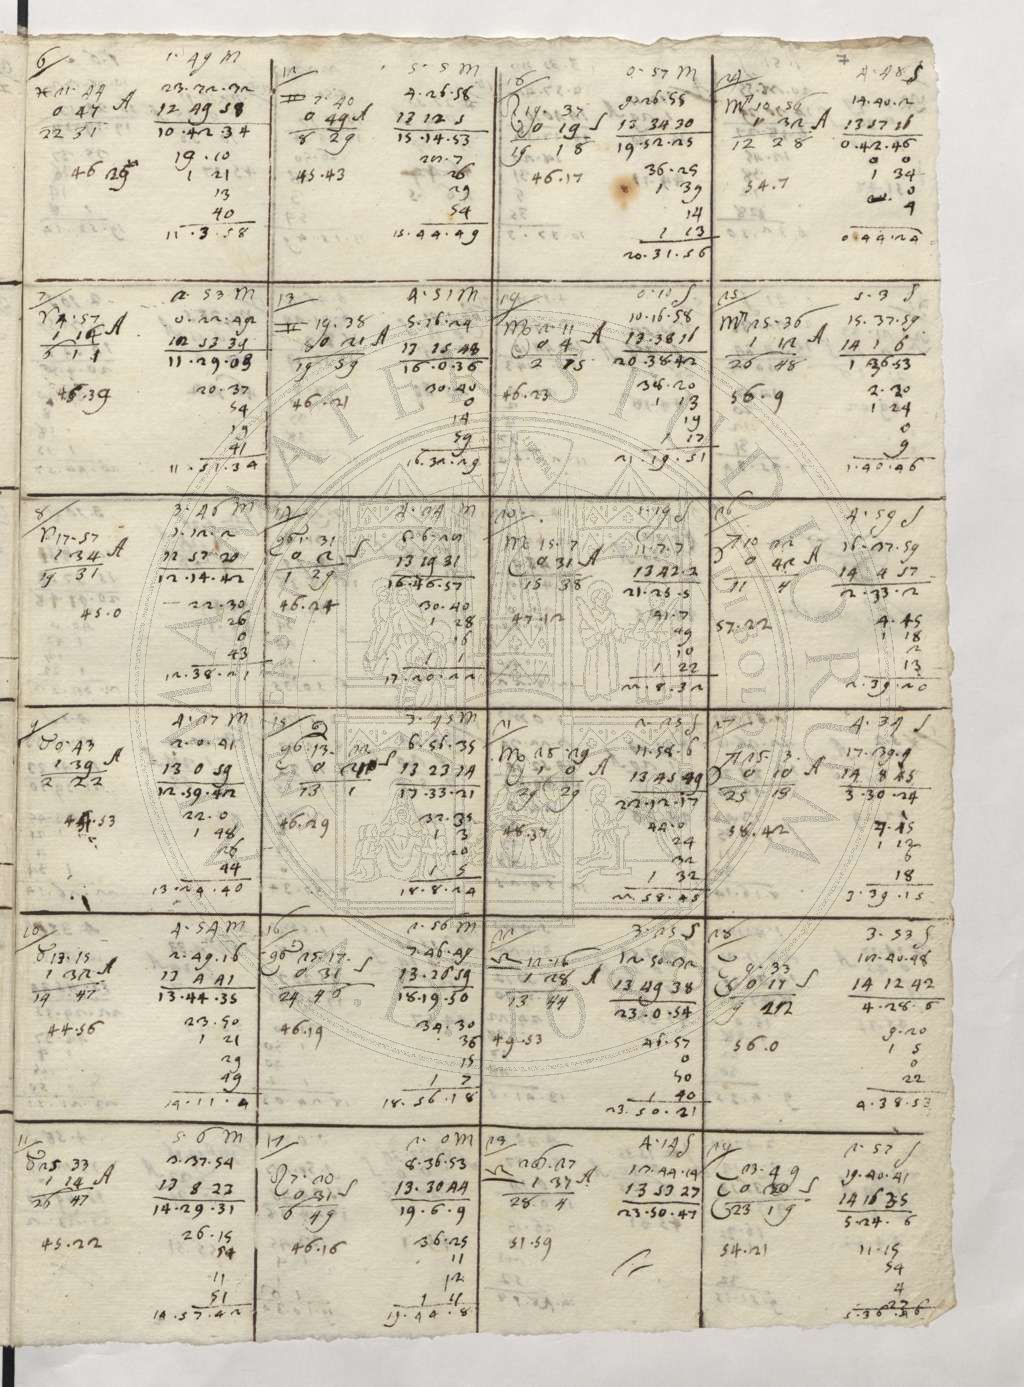 7
6 1.49 M
♓ 21.44 A 23.22.32
0 47 12 49 58
22 31 10.42.34
46 29 19.10
1 21
13
40
11.3.58
12 5.5 M
♊ 7.40 4.26.58
0 49 A 13 12 5
8 29 15.14.53
45.43 27.7
26
29
54
15.44.49
18 0.57 M
♌ 19.37 9.26.55
0 19 S 13 34 30
19 18 19.52.25
46.17 36.25
1 39
14
1 13
20.31.56
24 4.48 S
♍ 10.56 14.40.2
1 32 A 13 57 16
12 28 0.42.46
54.7 0 0
1 34
0
4
0.44.24
7 2.53 M
♈ 4.57 0.22.42
1 14 A
6 11 11.29.09
46.39 20.37
54
19
41
11.51.34
13 4.51 M
♊ 19.38 5.16.24
0 21 A 13 15 48
19 59 16.0.36
46.21 30.40
0
14
59
16.32.29
19 0.10 S
10.16.58
0 4 A 13.38 16
2 15 20.38.42
46.23 38.20
1 13
19
1 17
21.19.51
25 5.3 S
♍ 25.36 15.37.59
1 12 A 14 1 6
26 48 1 36 53
56.9 2.20
1 24
0
9
1.40.46
8 3.46 M
♈ 17.57
1 34 A 12 57 20
19 31 12.14.42
45.0 22.30
26
0
43
12.38.21
14 4.24 M
♋ 1.31
0 2 S 13 19 31
1 29 16.46.57
46.24 30.40
1 28
16
1 1
17.20.22
20 1.19 S
15.7 11.7.7
0 31 A 13 42 2
15 38 21.25.5
47.12 41.7
49
10
1 22
22.8.32
26 4.59 S
10 22 16.27.59
0 42 A 14 4 57
11 4 2.33.2
57.22 4.45
1 18
2
13
2.39.20
9 4.27 M
♉ 0.43 2.0.41
1 39 A 13 0 59
2 22 12.59.42
22.0
1 48
26
44
13.24.40
15 3.45 M
♋ 13.22 6.56.35
13 23 14
13 1 17.33.21
46.29 32.35
1 3
20
1 5
18.8.24
21 2.25 S
25.29 11.58.6
1 0 A 13 45 49
29 29 22.12.17
48.37 44.0
24
32
1 32
22.58.45
27 4.34 S
15.3. 17.39.9
0 10 A 14 8 45
25 13 3.30.24
58.42 7.15
1 12
6
18
3.39.15
10 4.54 M
♉ 13.15 2.49.16
1 32 A 13 4 41
14 47 13.44.35
44.56 23.50
1 21
29
49
14.11.4
16 2.56 M
♋ 25.17. 7.46.49
0 31 S 13.26 59
24 46 18.19.50
46.19 34.30
36
15
1 7
18.56.18
22 3.25 S
♎ 12.16 12.50.32
1 28 A 13 49 38
13 44 23.0.54
49.53 46.57
0
50
1 40
23.50.21
28 3.53 S
9.33 12.40.48
0 11 S 14 12 42
4.28.6
56.0 9.20
1 5
0
22
4.38.53
11 5.6 M
♉ 25.33 3.37.54
1 14 A 13 8 23
26 47 14.29.31
45.22 26.15
54
11
51
14.57.42
17 2.0 M
♌ 7.20 8.36.53
0 31 S 13.30 44
6 49 19.6.9
46.16 36.25
11
12
1 11
19.40.8
23 4.14 S
♎ 26.27 12.44.14
1 37 A 13 53 27
28 4 23.50.47
51.59
29 2.57 S
23.49 19.40.41
0 30 S 14 16 35
23 19 5.24.6
54.21 11.15
54
4
27
5.36.46